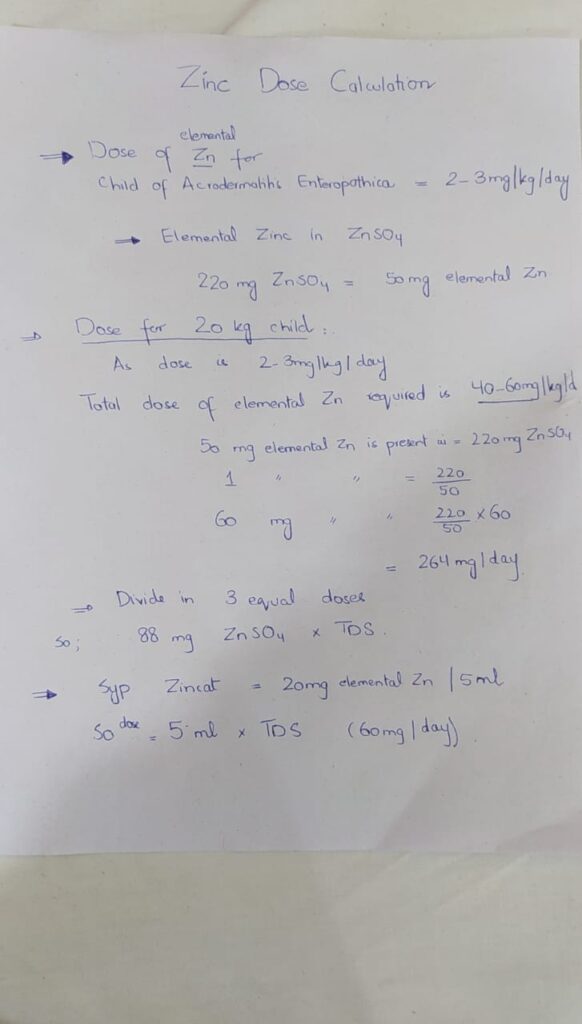 Zinc Dose Calculation
→ Dose of elemental Zn for
Child of Acrodermatitis Enteropathica = 2-3mg/kg/day
→ Elemental Zinc in ZnSO4
220 mg ZnSO4 = 50mg elemental Zn
→ Dose for 20 kg child :.
As dose is 2-3mg/kg/day
Total dose of elemental Zn required is 40-60mg/kg/d
50 mg elemental Zn is present in = 220mg ZnSO4
1 " " = 220/50
60 mg " " 220/50 x 60
= 264 mg/day
→ Divide in 3 equal doses
So; 88 mg ZnSO4 x TDS.
→ Syp Zincat = 20mg elemental Zn / 5ml
So dose = 5 ml x TDS (60mg/day)